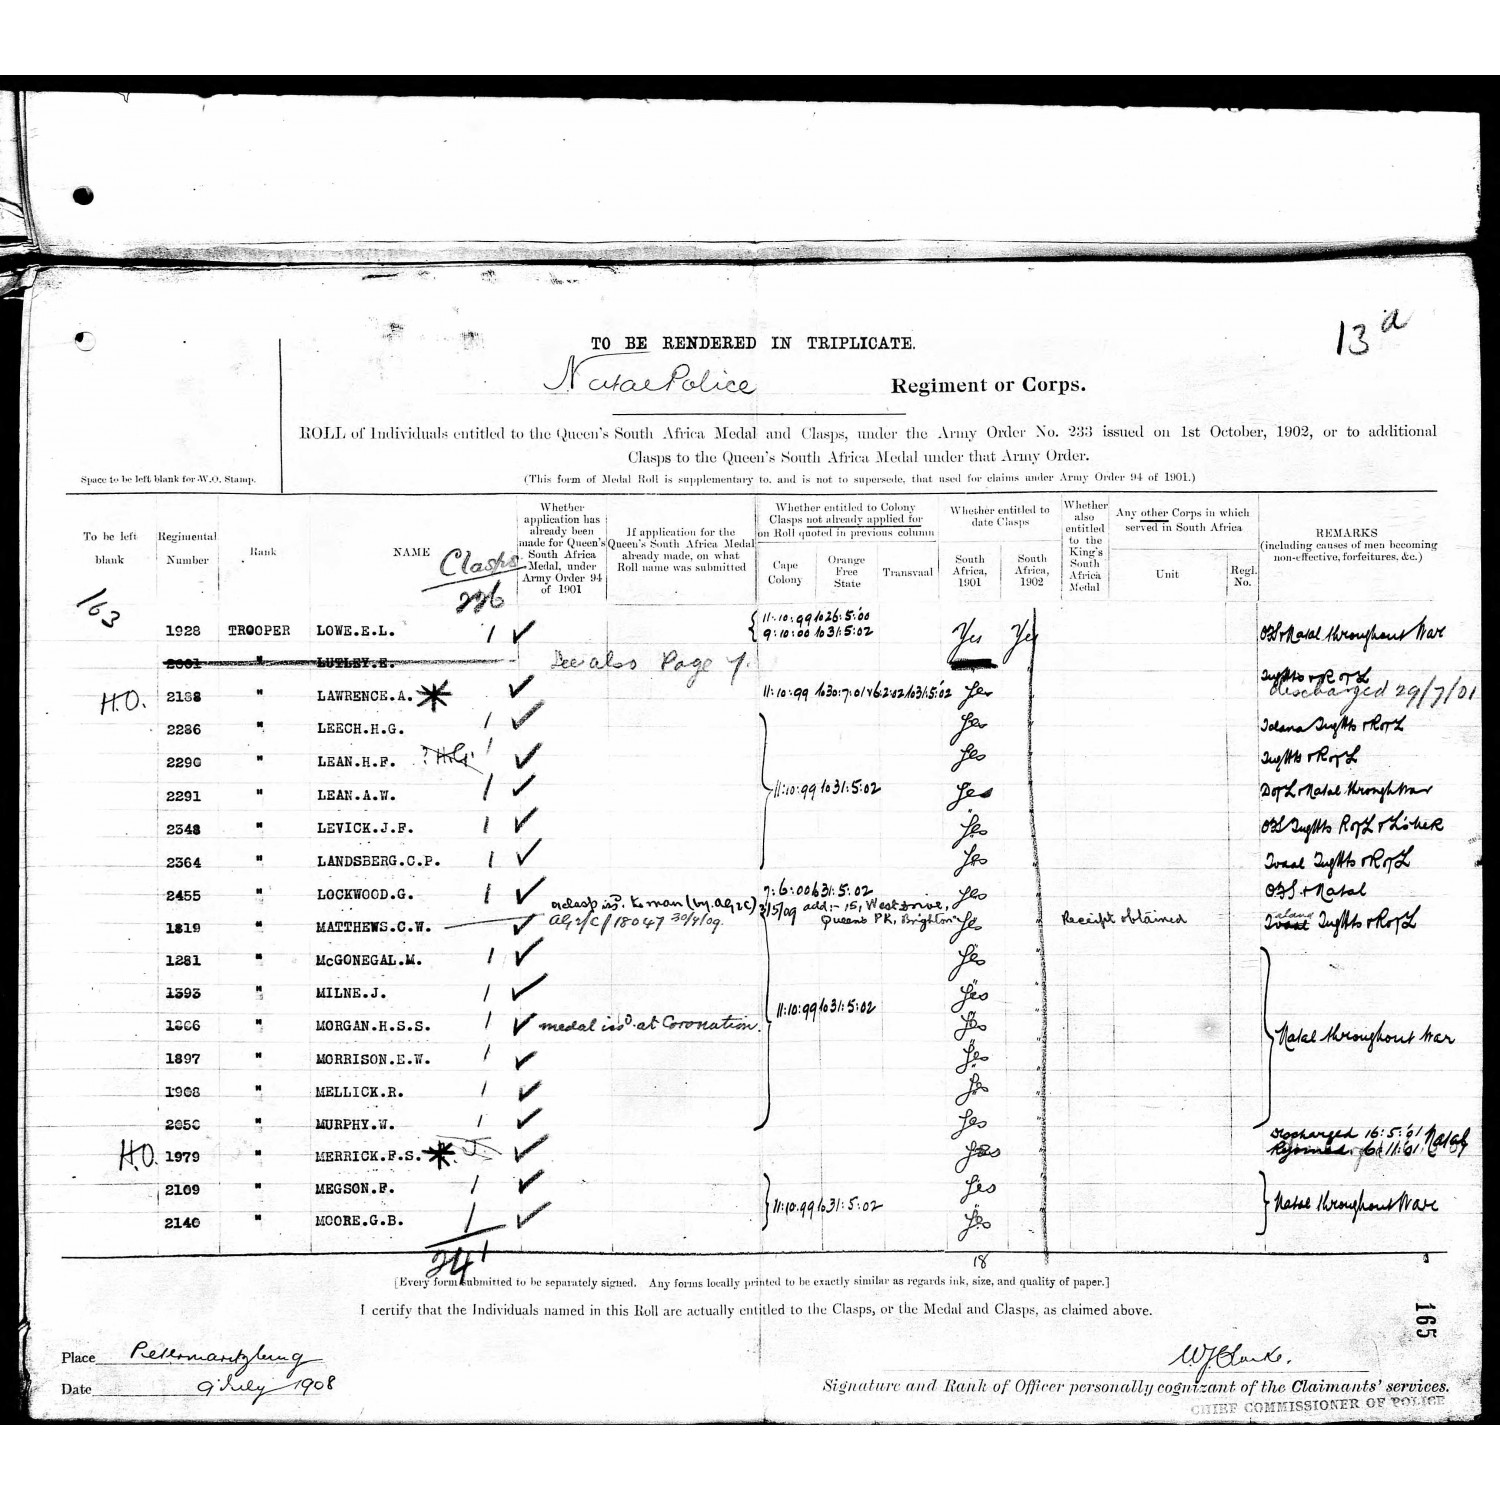 13 a
TO BE RENDERED IN TRIPLICATE.
Natal Police Regiment or Corps.
ROLL of Individuals entitled to the Queen's South Africa Medal and Clasps, under the Army Order No. 233 issued on 1st October, 1902, or to additional
Clasps to the Queen's South Africa Medal under that Army Order.
Space to be left blank for W.O. Stamp.
(This form of Medal Roll is supplementary to, and is not to supersede, that used for claims under Army Order 94 of 1901.)
To be left blank
Regimental Number
Rank
NAME
Clasps
226
Whether application has already been made for Queen's South Africa Medal, under Army Order 94 of 1901
If application for the Queen's South Africa Medal already made, on what Roll name was submitted
Whether entitled to Colony Clasps not already applied for on Roll quoted in previous column
Cape Colony
Orange Free State
Transvaal
Whether entitled to date Clasps
South Africa, 1901
South Africa, 1902
Whether also entitled to the King's South Africa Medal
Any other Corps in which served in South Africa
Unit
Regl. No.
REMARKS
(including causes of men becoming non-effective, forfeitures, &c.)
163
1928 TROOPER LOWE.E.L. 1 ✓ 11.10.99 to 26.5.00 9.10.00 to 31.5.02 Yes Yes OFS & Natal throughout War
2001 " LUTLEY.E. See also Page 7.
H.O. 2188 " LAWRENCE.A. ✓ 11.10.99 to 30.7.01 & 6.2.02 to 31.5.02 Yes Tughts & R of L discharged 29/7/01
2286 " LEECH.H.G. 1 ✓ Yes Talana Tughts & R of L
2290 " LEAN.H.F. ? H.G. 1 ✓ Yes Tughts & R of L
2291 " LEAN.A.W. 1 ✓ 11.10.99 to 31.5.02 Yes D of L & Natal through War
2348 " LEVICK.J.F. 1 ✓ Yes OFS Tughts R of L & L'smith
2364 " LANDSBERG.C.P. 1 ✓ Yes Tvaal Tughts & R of L
2455 " LOCKWOOD.G. 1 ✓ 7.6.00 to 31.5.02 Yes OFS & Natal
1819 " MATTHEWS.C.W. ✓ clasp iss. to man (by AG 2 C) 3/5/09 add:- 15, West Drive,
AG 2/C/18047 30/4/09. Queens PK, Brighton Yes Receipt obtained Talana Tughts & R of L
1281 " McGONEGAL.M. 1 ✓ Yes
1393 " MILNE.J. 1 ✓ 11.10.99 to 31.5.02 Yes
1866 " MORGAN.H.S.S. 1 ✓ medal issd. at Coronation. Yes Natal throughout War
1897 " MORRISON.E.W. 1 ✓ Yes
1908 " MELLICK.R. 1 ✓ Yes
2050 " MURPHY.W. 1 ✓ Yes
H.O. 1979 " MERRICK.F.S. ✓ Yes Discharged 16.5.01 Rejoined 6.11.01 Natal
2109 " MEGSON.F. 1 ✓ 11.10.99 to 31.5.02 Yes Natal throughout War
2140 " MOORE.G.B. 1 ✓ Yes
241
18
[Every form submitted to be separately signed. Any forms locally printed to be exactly similar as regards ink, size, and quality of paper.]
I certify that the Individuals named in this Roll are actually entitled to the Clasps, or the Medal and Clasps, as claimed above.
165
Place Pietermaritzburg
W J Clarke.
Date 9 July 1908
Signature and Rank of Officer personally cognizant of the Claimants' services.
CHIEF COMMISSIONER OF POLICE